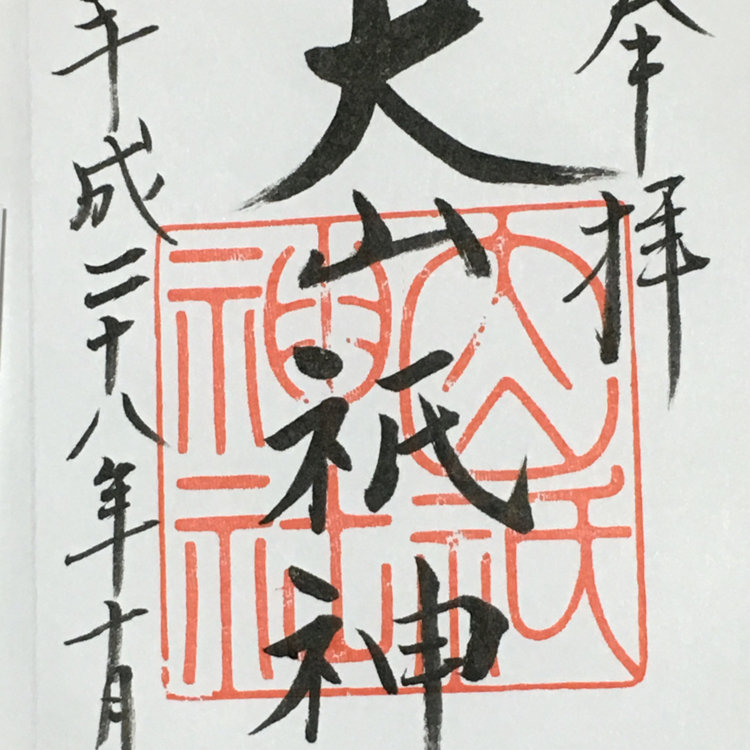 奉拝
大山祇神
平成二十八年十月
大山祇
神社